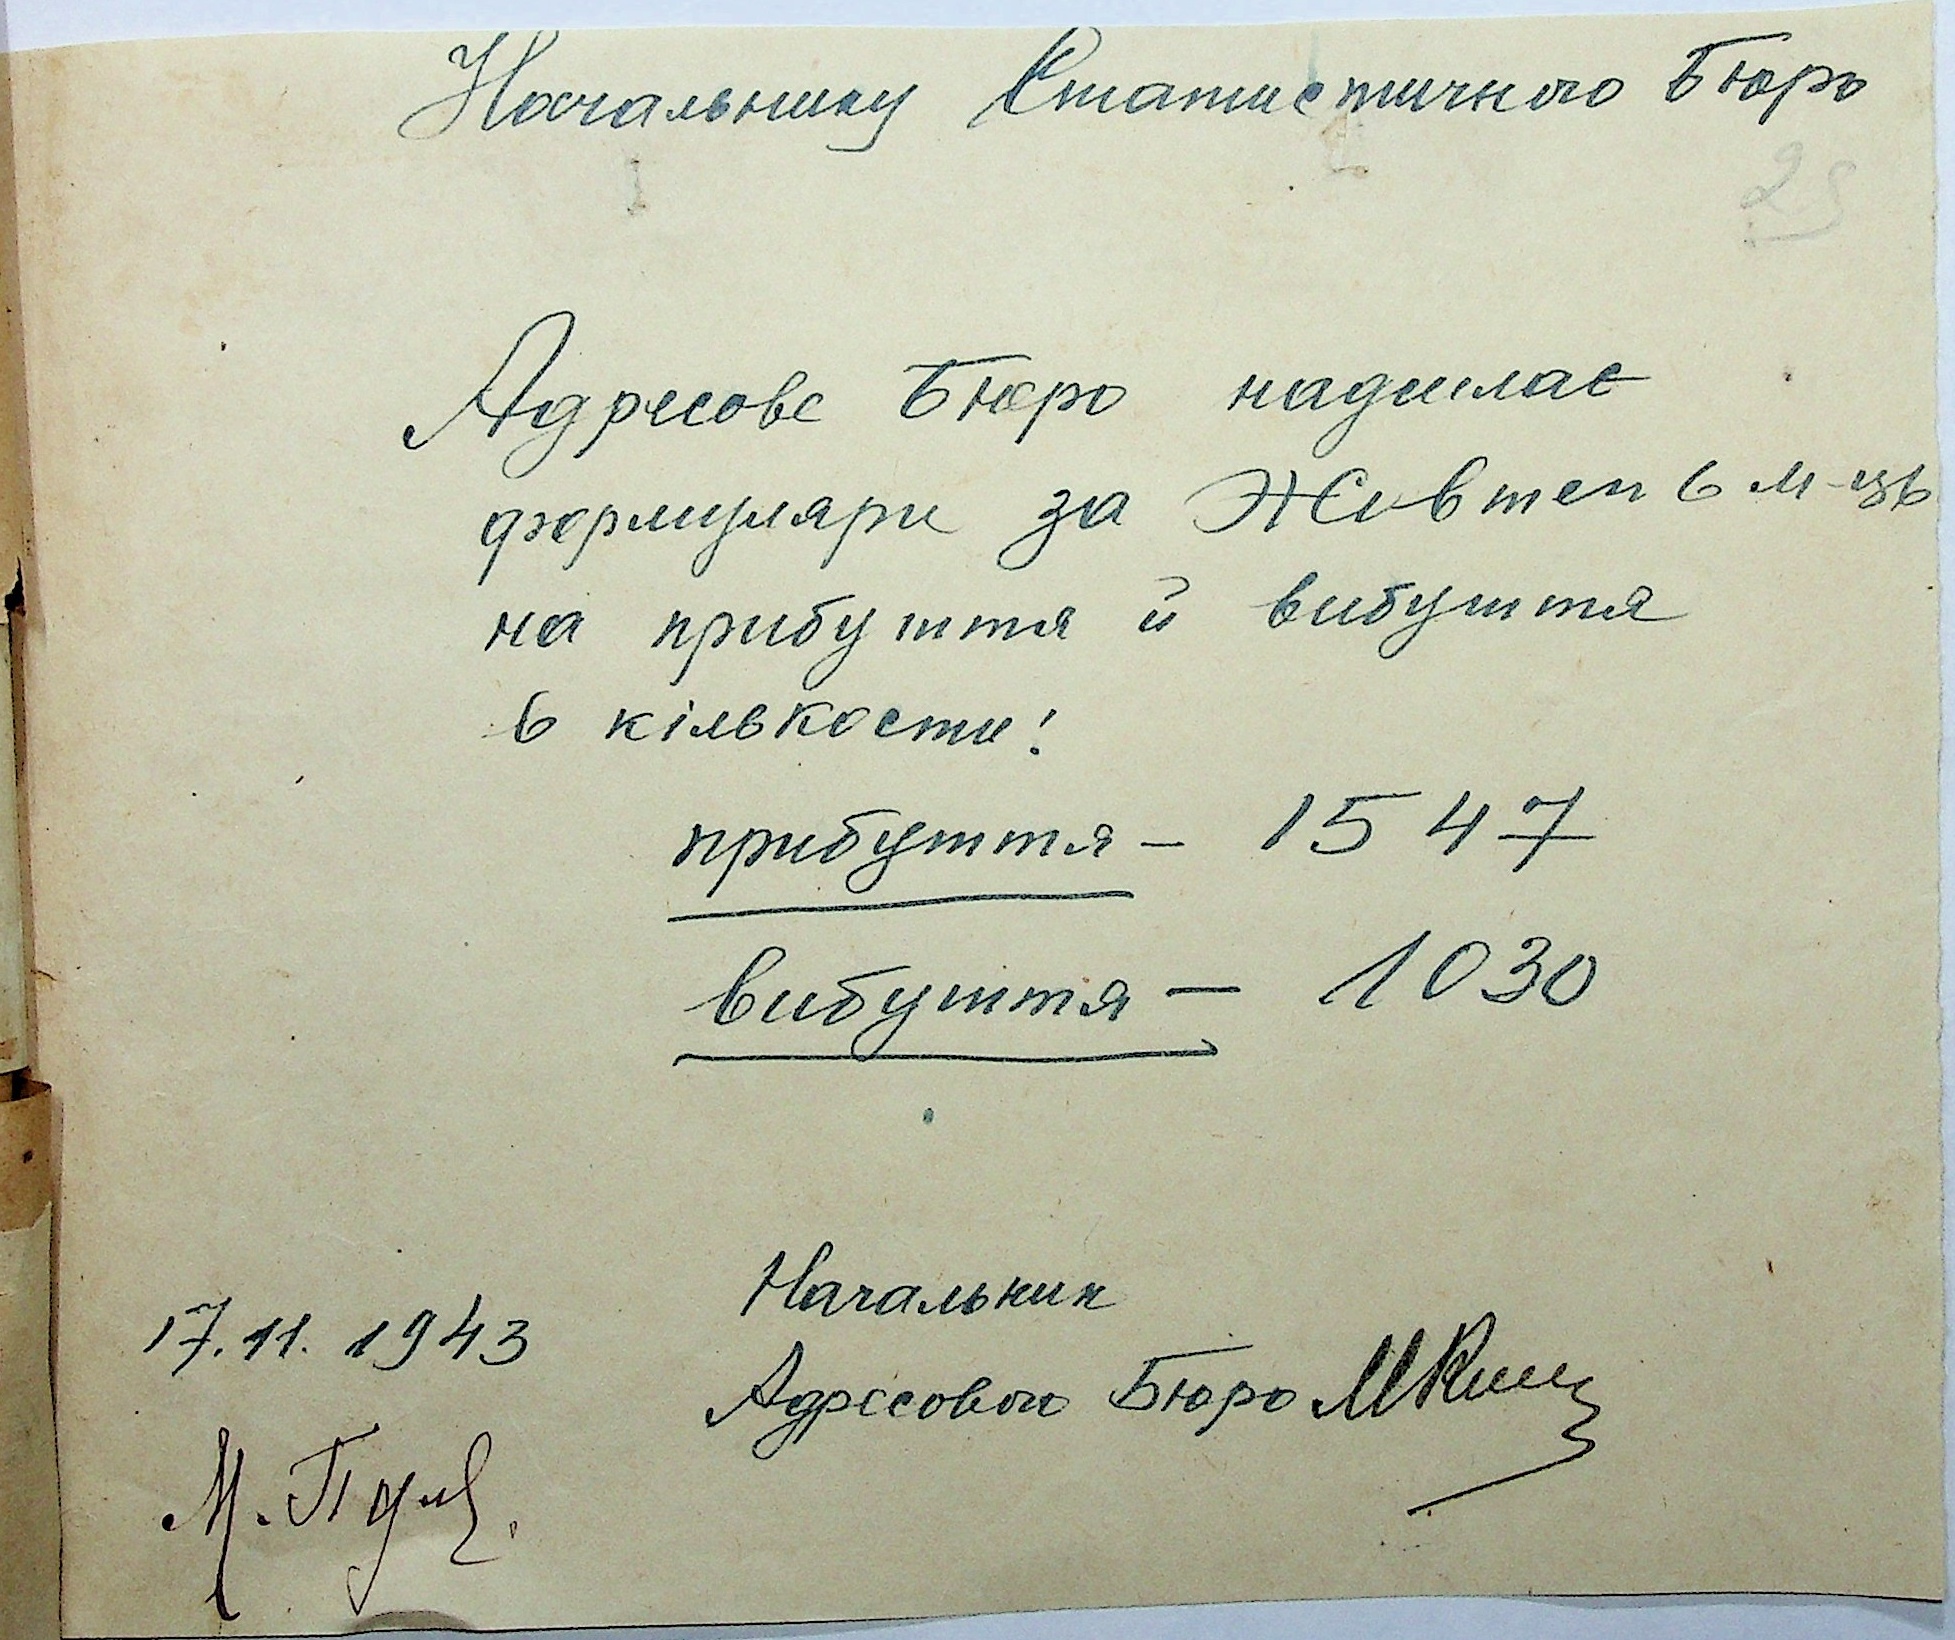 Начальнику Статистичного Бюро
25
Адресове Бюро надсилає
формуляри за Жовтень м-ць
на прибуття й вибуття
в кількости:
прибуття – 1547
вибуття – 1030
Начальник
17.11.1943
Адресового Бюро
М.